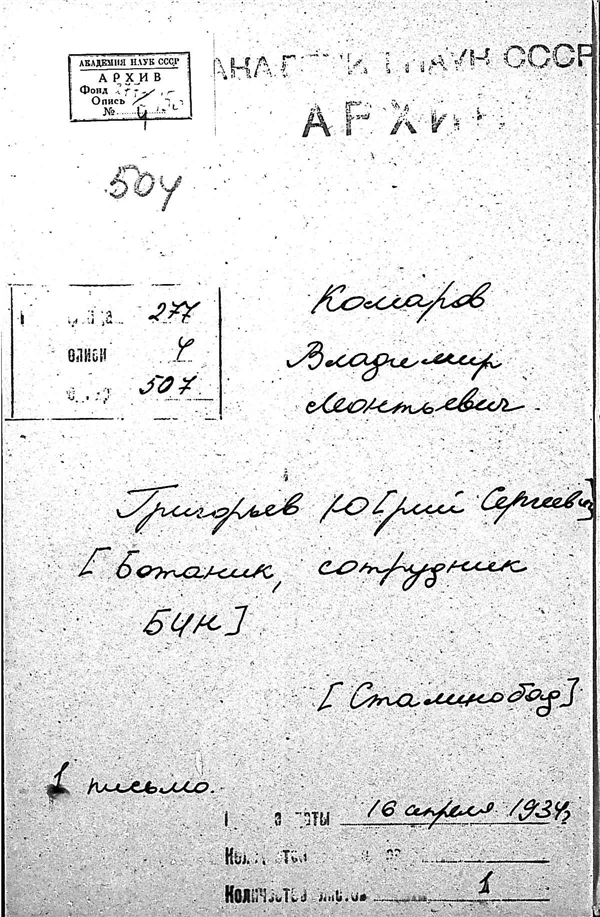 АКАДЕМИЯ НАУК СССР
АРХИВ
Фонд
Опись
№ 4
НАУК СССР
АРХИВ
504
277
описи 4
507
Комаров
Владимир
Леонтьевич.
Григорьев Ю[рий Сергеевич]
[Ботаник, сотрудник
БИН]
[Сталинобад]
1 письмо.
16 апреля 1934г
Количество листов 1